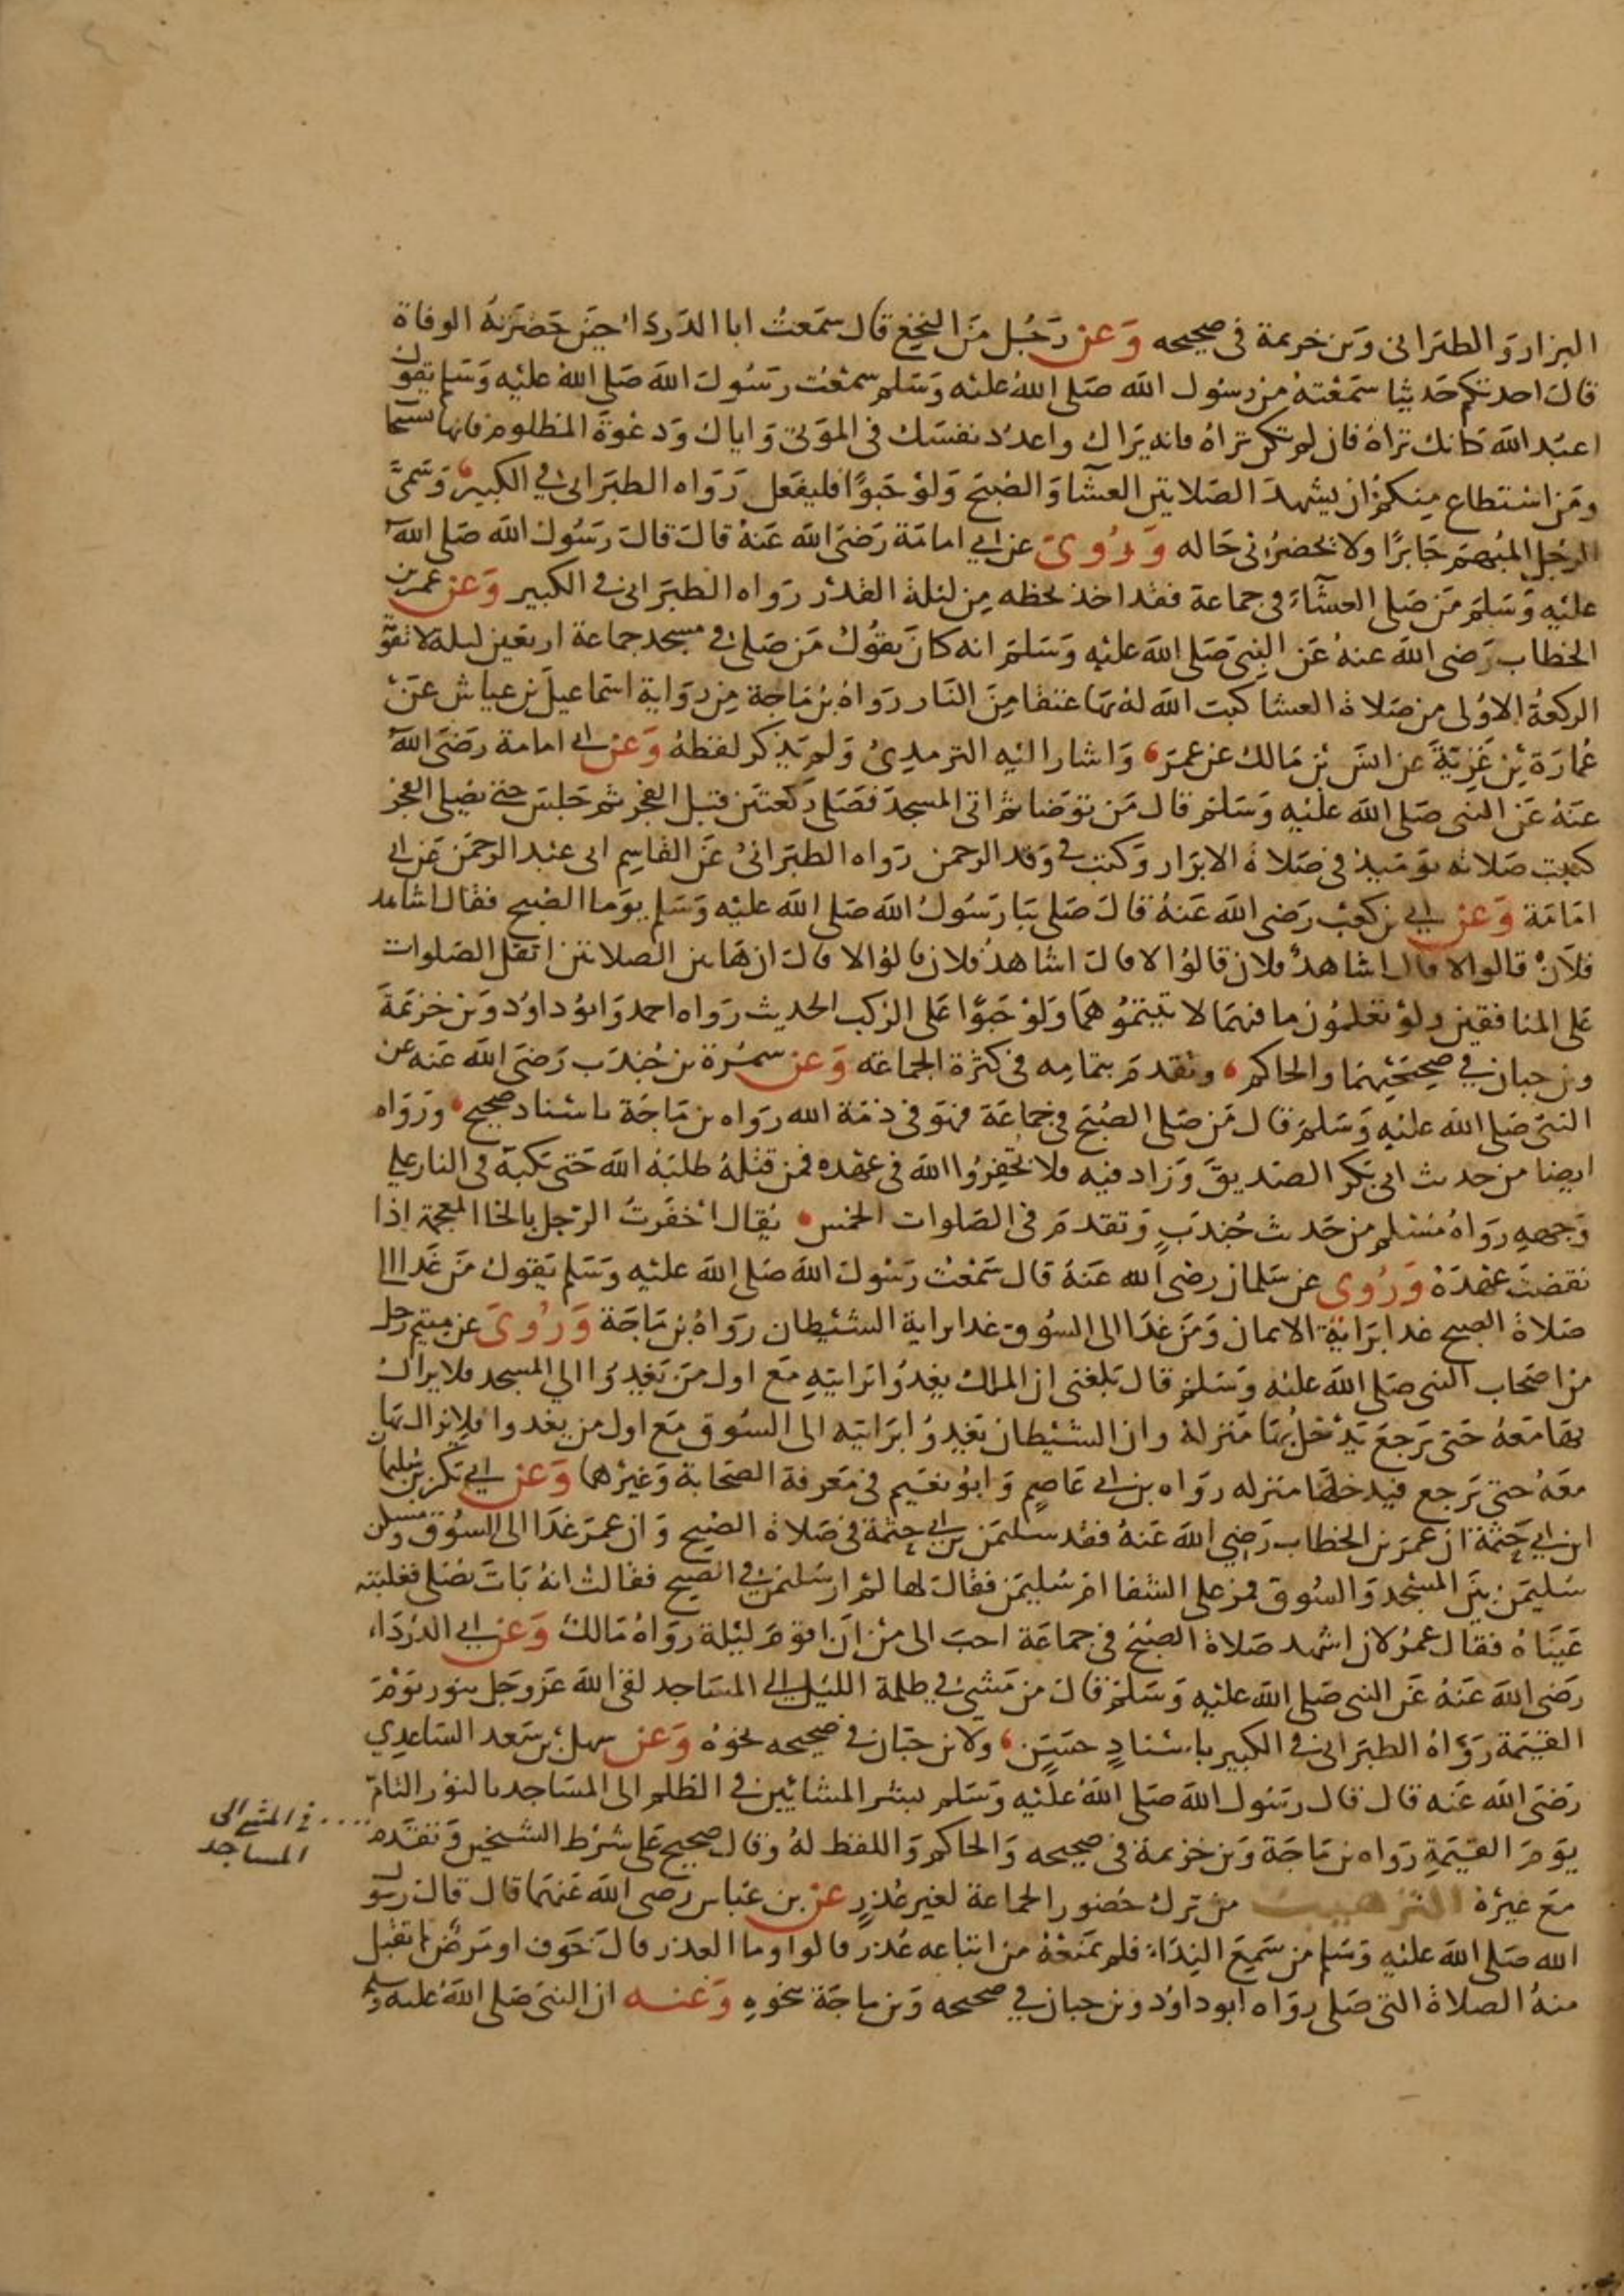 البزار والطبرانى وبن خزيمة فى صحيحه وعن رجل من النخع قال سمعت ابا الدرداء حين حضرته الوفاة
قال احدثكم حديثا سمعته من رسول الله صلى الله عليه وسلم سمعت رسول الله صلى الله عليه وسلم يقول
اعبد الله كانك تراه فان لم تكن تراه فانه يراك واعدد نفسك فى الموتى واياك ودعوة المظلوم فانها تستجا
ومن استطاع منكم ان يشهد الصلاتين العشا والصبح ولو حبوا فليفعل رواه الطبرانى فى الكبير وسمى
الرجل المبهم جابرا ولا يحضرنى حاله وروى عن ابى امامة رضى الله عنه قال قال رسول الله صلى الله
عليه وسلم من صلى العشاء فى جماعة فقد اخذ بحظه من ليلة القدر رواه الطبرانى فى الكبير وعن عمر بن
الخطاب رضى الله عنه عن النبى صلى الله عليه وسلم انه كان يقول من صلى فى مسجد جماعة اربعين ليلة لا تفو
الركعة الاولى من صلاة العشا كتب الله له بها عتقا من النار رواه بن ماجة من رواية اسماعيل بن عياش عن
عمارة بن غزية عن انس بن مالك عن عمر واشار اليه الترمذى ولم يذكر لفظه وعن ابى امامة رضى الله
عنه عن النبى صلى الله عليه وسلم قال من توضا ثم اتى المسجد فصلى ركعتين قبل الفجر ثم جلس حتى يصلى الفجر
كتبت صلاته يومئيذ فى صلاة الابرار وكتب فى وفد الرحمن رواه الطبرانى عن القاسم ابى عبد الرحمن عن ابى
امامة وعن ابى بن كعب رضى الله عنه قال صلى بنا رسول الله صلى الله عليه وسلم يوما الصبح فقال اشاهد
فلان قالوا لا قال اشاهد فلان قالوا لا قال اشاهد فلان قالوا لا قال ان هاتين الصلاتين اثقل الصلوات
على المنافقين ولو تعلمون ما فيهما لاتيتموهما ولو حبوا على الركب الحديث رواه احمد وابو داود وبن خزيمة
وبن حبان فى صحيحيهما والحاكم وتقدم بتمامه فى كثرة الجماعة وعن سمرة بن جندب رضى الله عنه عن
النبى صلى الله عليه وسلم قال من صلى الصبح فى جماعة فهو فى ذمة الله رواه بن ماجة باسناد صحيح ورواه
ايضا من حديث ابى بكر الصديق وزاد فيه فلا تخفروا الله فى عهده فمن قتله طلبه الله حتى يكبه فى النار على
وجهه رواه مسلم من حديث جندب وتقدم فى الصلوات الخمس يقال اخفرت الرجل بالخا المعجمة اذا
نقضت عهده وروى عن سلمان رضى الله عنه قال سمعت رسول الله صلى الله عليه وسلم يقول من غدا الى
صلاة الصبح غدا براية الايمان ومن غدا الى السوق غدا براية الشيطان رواه بن ماجة وروى عن ميتم رجل
من اصحاب النبى صلى الله عليه وسلم قال بلغنى ان الملك يغدوا برايته مع اول من يغدوا الى المسجد فلا يزال
بها معه حتى يرجع يدخل بها منزله وان الشيطان يغدوا برايته الى السوق مع اول من يغدوا فلا يزال بها
معه حتى يرجع فيدخلها منزله رواه بن ابى عاصم وابو نعيم فى معرفة الصحابة وغيرهما وعن ابى بكر بن سليما
ابن ابى حثمة ان عمر بن الخطاب رضى الله عنه فقد سليمن بن ابى حثمة فى صلاة الصبح وان عمر غدا الى السوق ومسكن
سليمن بين المسجد والسوق فمر على الشفا ام سليمن فقال لها لم ار سليمن فى الصبح فقالت انه بات يصلى فغلبته
عيناه فقال عمر لان اشهد صلاة الصبح فى جماعة احب الى من ان اقوم ليلة رواه مالك وعن ابى الدرداء
رضى الله عنه عن النبى صلى الله عليه وسلم قال من مشى فى ظلمة الليل الى المساجد لقى الله عز وجل بنور يوم
القيمة رواه الطبرانى فى الكبير باسناد حسن ولابن حبان فى صحيحه نحوه وعن سهل بن سعد الساعدي
رضى الله عنه قال قال رسول الله صلى الله عليه وسلم ليبشر المشائين فى الظلم الى المساجد بالنور التام
يوم القيمة رواه بن ماجة وبن خزيمة فى صحيحه والحاكم واللفظ له وقال صحيح على شرط الشيخين وتقدم
.... فى المشى الى
المساجد
مع غيره الترهيب من ترك حضور الجماعة لغير عذر عن بن عباس رضى الله عنهما قال قال رسول
الله صلى الله عليه وسلم من سمع النداء فلم يمنعه من اتباعه عذر قالوا وما العذر قال خوف او مرض لم تقبل
منه الصلاة التى صلى رواه ابو داود وبن حبان فى صحيحه وبن ماجة نحوه وعنه ان النبى صلى الله عليه وسلم